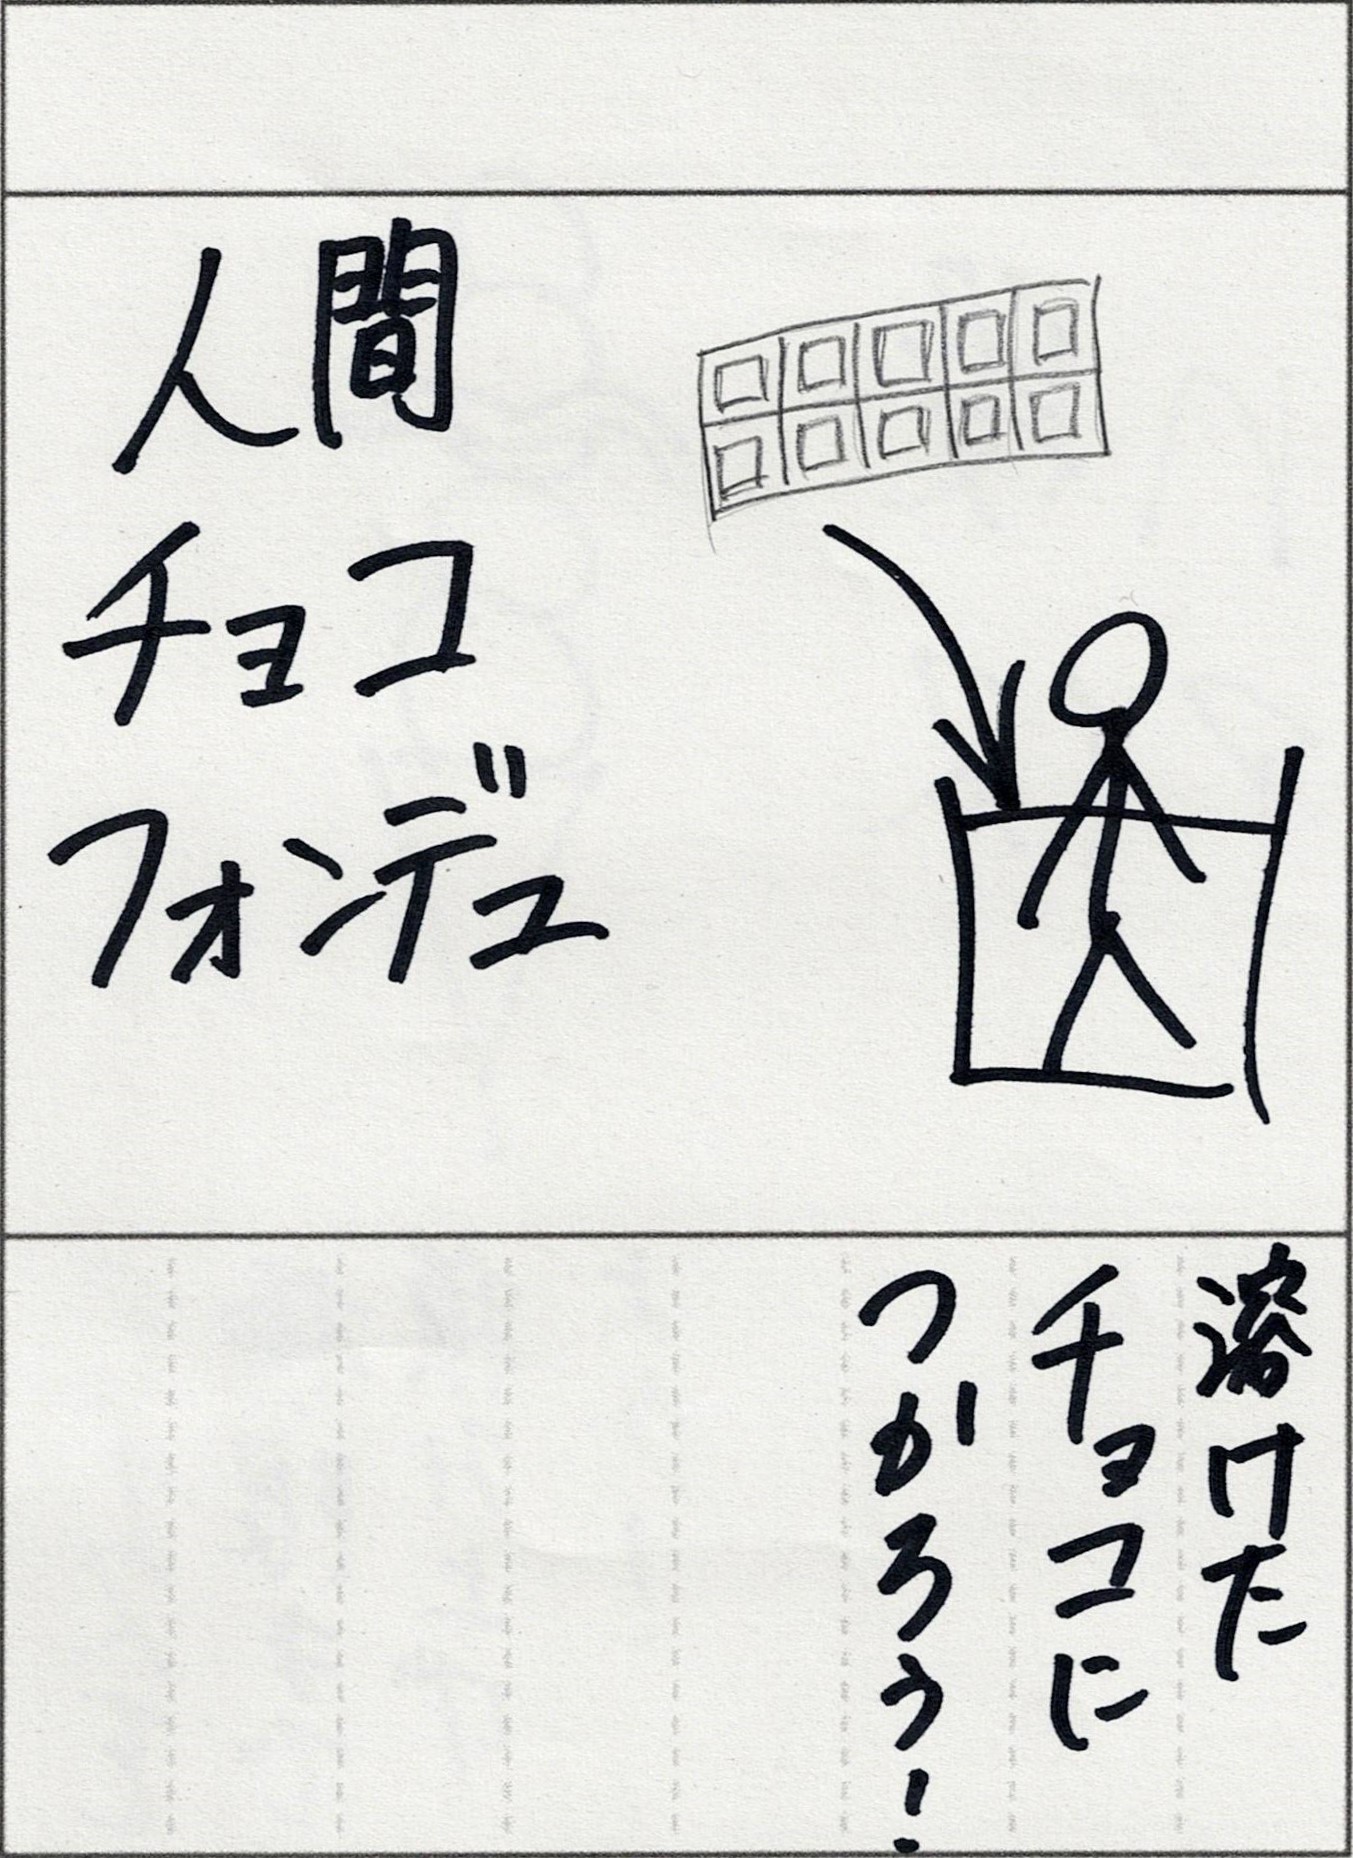 人間
チョコ
フォンデュ
溶けた
チョコに
つかろう!